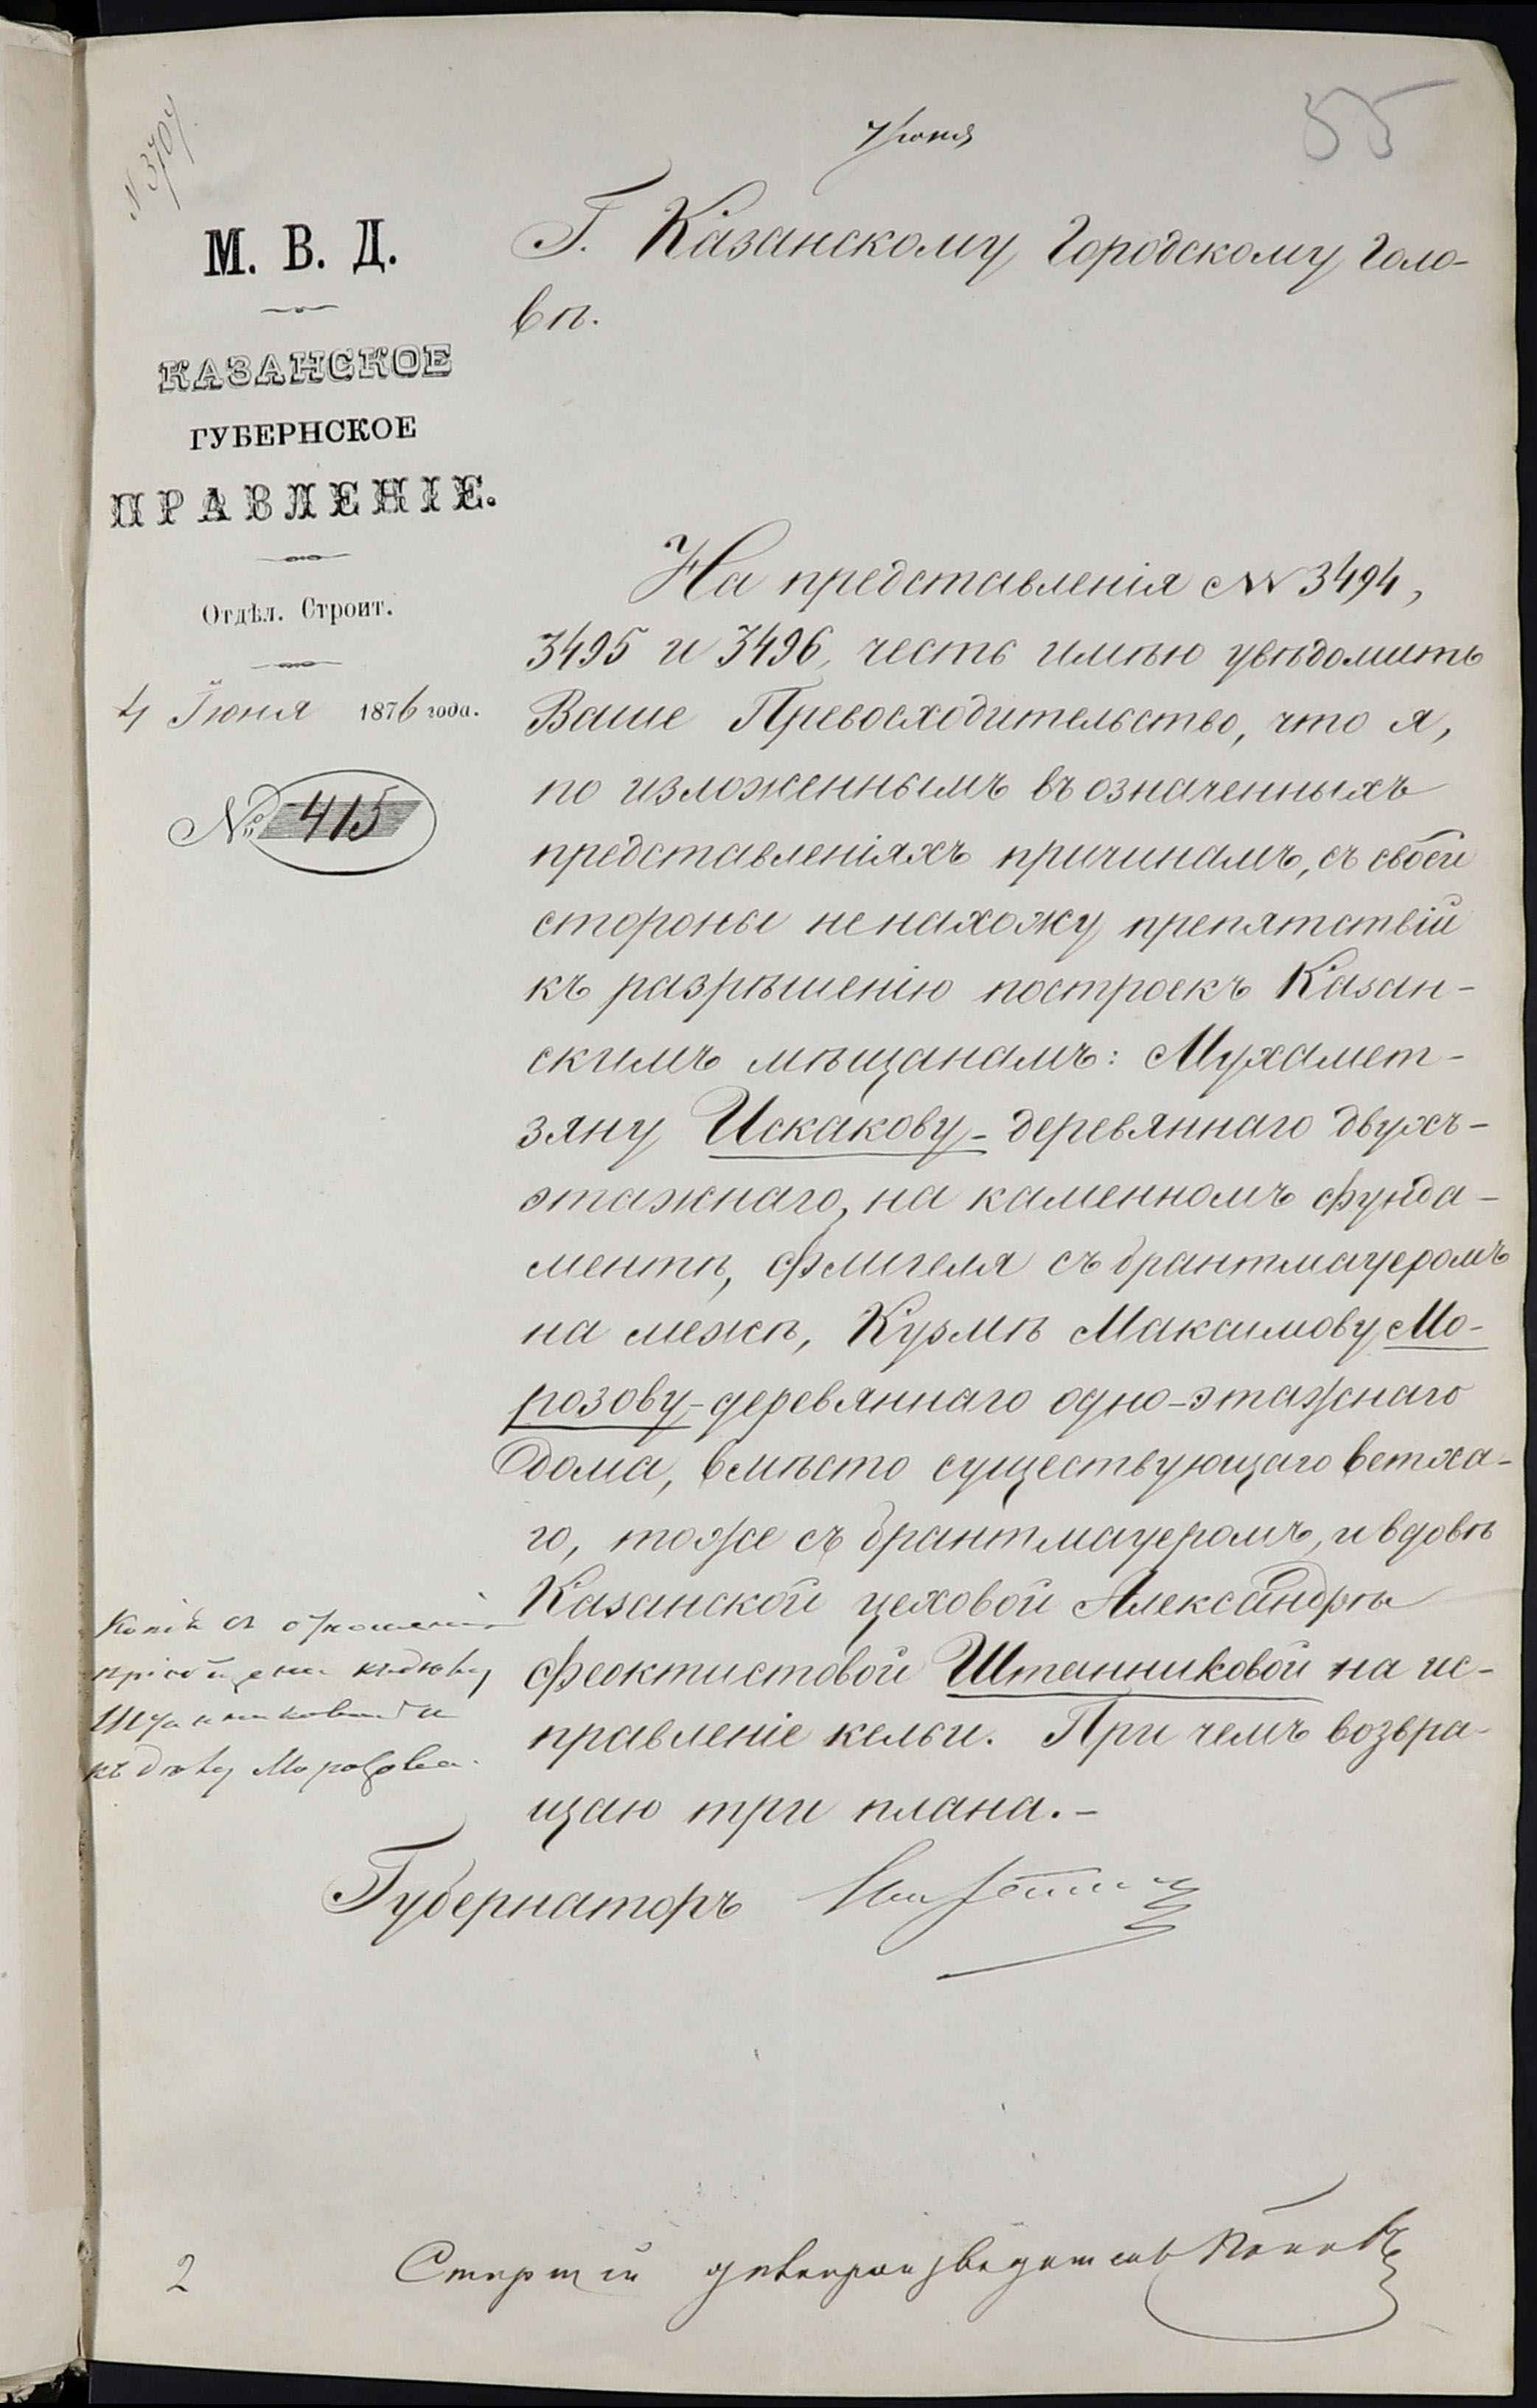 N 3704
7 Іюня
55
М. В. Д.
КАЗАНСКОЕ
ГУБЕРНСКОЕ
ПРАВЛЕНІЕ.
Отдѣл. Строит.
4 Іюня 1876 года.
№ 415
Г. Казанскому Городскому Голо-
вѣ.
На представленія №№ 3494,
3495 и 3496, честь имѣю увѣдомить
Ваше Превосходительство, что я,
по изложеннымъ въ означенныхъ
представленіяхъ причинамъ, съ своей
стороны не нахожу препятствій
къ разрѣшенію построекъ Казан-
скимъ мѣщанамъ: Мухамет-
зяну Искакову - деревяннаго двухъ-
этажнаго, на каменномъ фунда-
ментѣ, флигеля съ брантмауеромъ
на межѣ, Кузмѣ Максимову Мо-
розову - деревяннаго одно-этажнаго
дома, вмѣсто существующаго ветха-
го, тоже съ брантмауеромъ, и вдовѣ
Казанской цеховой Александрѣ
Феоктистовой Штанниковой на ис-
правленіе кельи. При чемъ возвра-
щаю три плана.-
Копіи съ отношенія
пріобщены къ дѣлу
Штанниковой и
къ дѣлу Морозова.
Губернаторъ
Старшій дѣлопроизводитель Поповъ
2